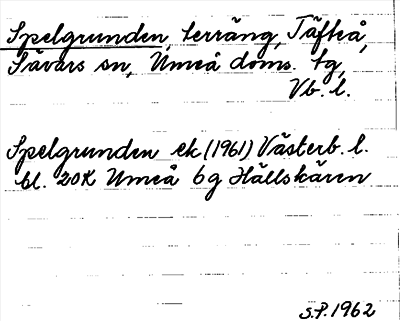 Spelgrunden, terräng, Täfteå,
Sävars sn, Umeå doms. tg,
Vb. l.
Spelgrunden ek (1961) Västerb. l.
bl. 20K Umeå 6g Hällskären
S.P. 1962